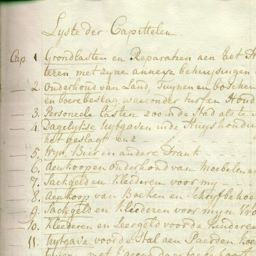 Lyste der Capittelen
Cap. 1. Grondlasten en Reparatien aen het H
teren met zyne annexe behuysingen
2. onderhoud van Land, Tuynen en bosschen
en boere beslag waeronder turf en Houd
3. Personeele lasten zoo in de Stad als te
4. Dagelykse uytgaven in de Huyshoudin
het geslagt enz
5. Wyn, Bier en andere Drank
6. Aenkoopen onderhoud van Moebelen
7. Sackgeld en Kleederen voor my
8. Aenkoop van Boeken en Schryfbehoe
9. Sackgeld en Kleederen voor myn Vro
10. Kleederen en Leergeld voor de Kinderen
11. uytgave voor de Stal aen Paerden, hoe